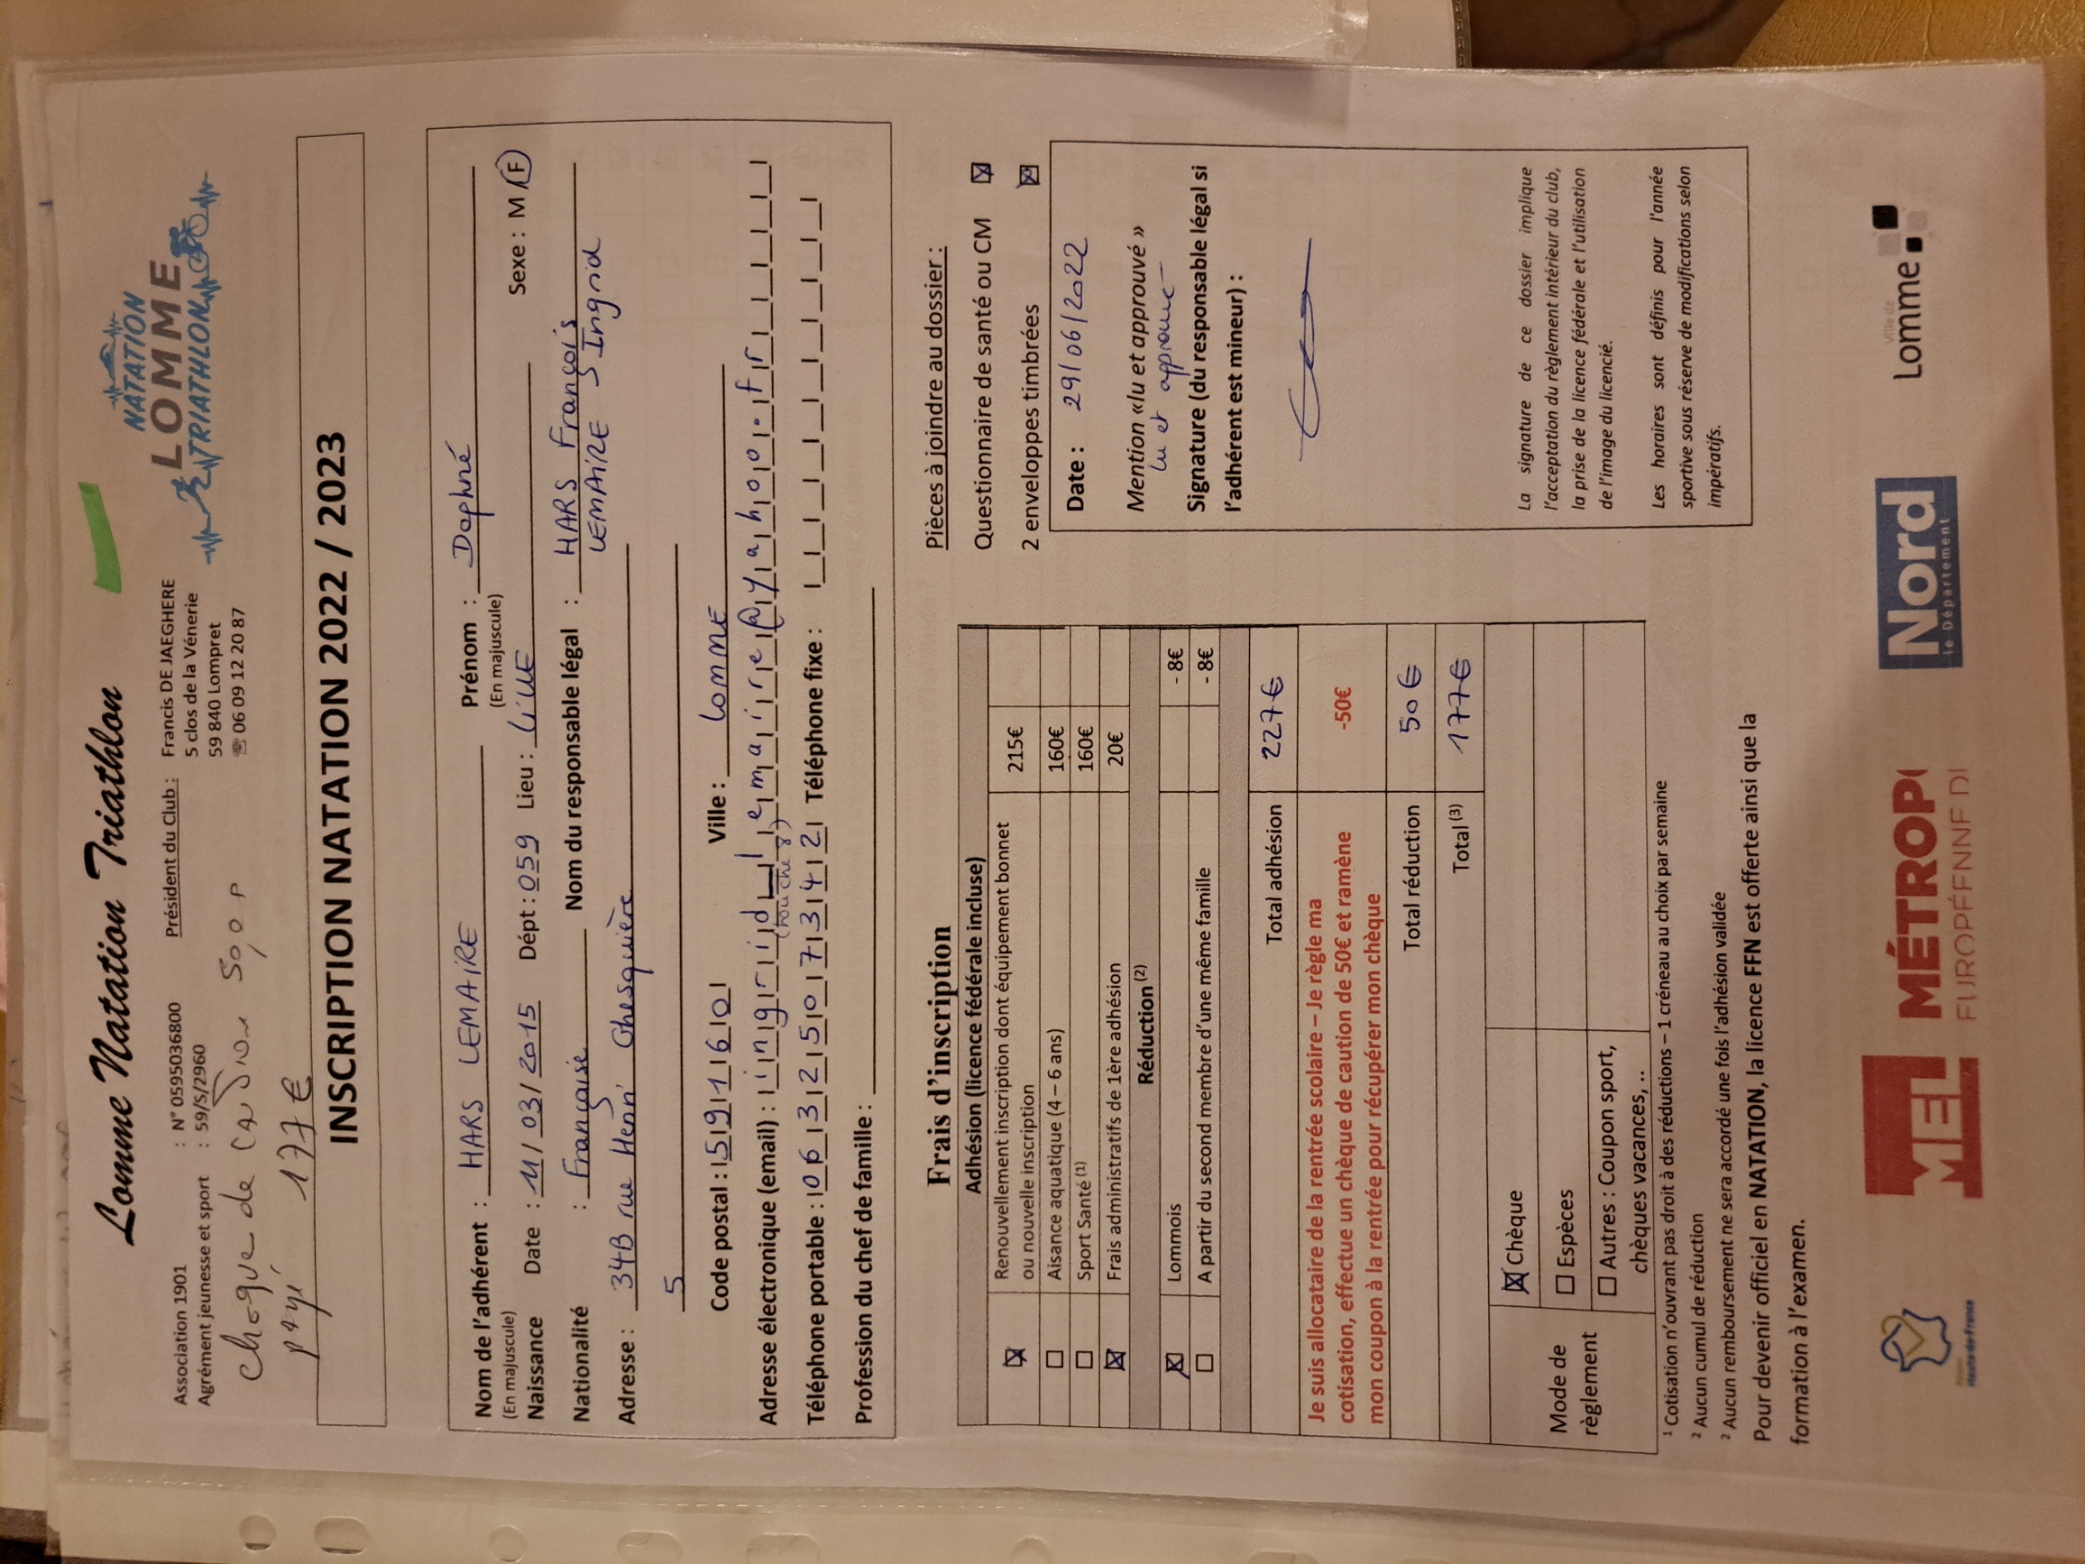 Lomme Natation Triathlon
NATATION
LOMME
TRIATHLON
Association 1901 : N° 0595036800
Agrément jeunesse et sport : 59/S/2960
Président du Club : Francis DE JAEGHERE
5 clos de la Vénerie
59 840 Lompret
☏ 06 09 12 20 87
chèque de caution 50
payé 177 €
INSCRIPTION NATATION 2022 / 2023
Nom de l'adhérent : HARS LEMAIRE Prénom : Daphné
(En majuscule) (En majuscule)
Naissance Date : 11/03/2015 Dépt : 059 Lieu : LILLE Sexe : M / F
Nationalité : Française Nom du responsable légal : HARS François
LEMAIRE Ingrid
Adresse : 34B rue Henri Ghesquière
5
Code postal : 59160 Ville : LOMME
Adresse électronique (email) : ingrid_lemaire@yahoo.fr
(touche 8)
Téléphone portable : 0632507342 Téléphone fixe :
Profession du chef de famille :
Frais d'inscription
Adhésion (licence fédérale incluse)
Renouvellement inscription dont équipement bonnet
ou nouvelle inscription 215€
Aisance aquatique (4 – 6 ans) 160€
Sport Santé (1) 160€
Frais administratifs de 1ère adhésion 20€
Réduction (2)
Lommois - 8€
A partir du second membre d'une même famille - 8€
Total adhésion 227€
Je suis allocataire de la rentrée scolaire – Je règle ma
cotisation, effectue un chèque de caution de 50€ et ramène
mon coupon à la rentrée pour récupérer mon chèque -50€
Total réduction 50€
Total (3) 177€
Mode de
règlement
Chèque
Espèces
Autres : Coupon sport,
chèques vacances, ..
Pièces à joindre au dossier :
Questionnaire de santé ou CM
2 enveloppes timbrées
Date : 29/06/2022
Mention «lu et approuvé »
lu et approuvé
Signature (du responsable légal si
l'adhérent est mineur) :
La signature de ce dossier implique
l'acceptation du règlement intérieur du club,
la prise de la licence fédérale et l'utilisation
de l'image du licencié.
Les horaires sont définis pour l'année
sportive sous réserve de modifications selon
impératifs.
1 Cotisation n'ouvrant pas droit à des réductions – 1 créneau au choix par semaine
2 Aucun cumul de réduction
2 Aucun remboursement ne sera accordé une fois l'adhésion validée
Pour devenir officiel en NATATION, la licence FFN est offerte ainsi que la
formation à l'examen.
Hauts-de-France
MEL
MÉTROP
EUROPÉENNE D
Nord
le Département
ville de
Lomme